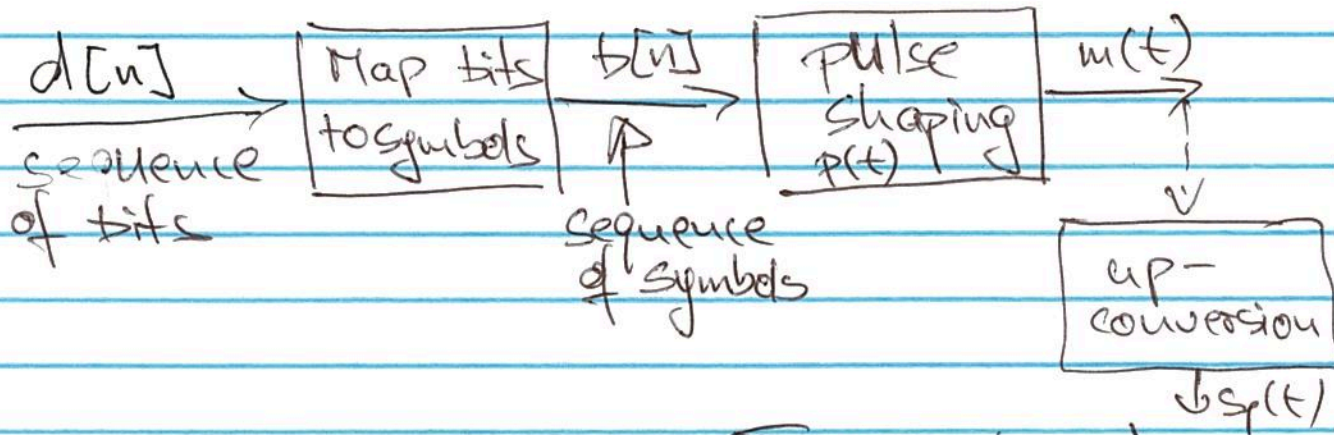 d[n]
sequence
of bits
Map bits
to symbols
b[n]
sequence
of symbols
pulse
shaping
p(t)
m(t)
up-
conversion
sp(t)